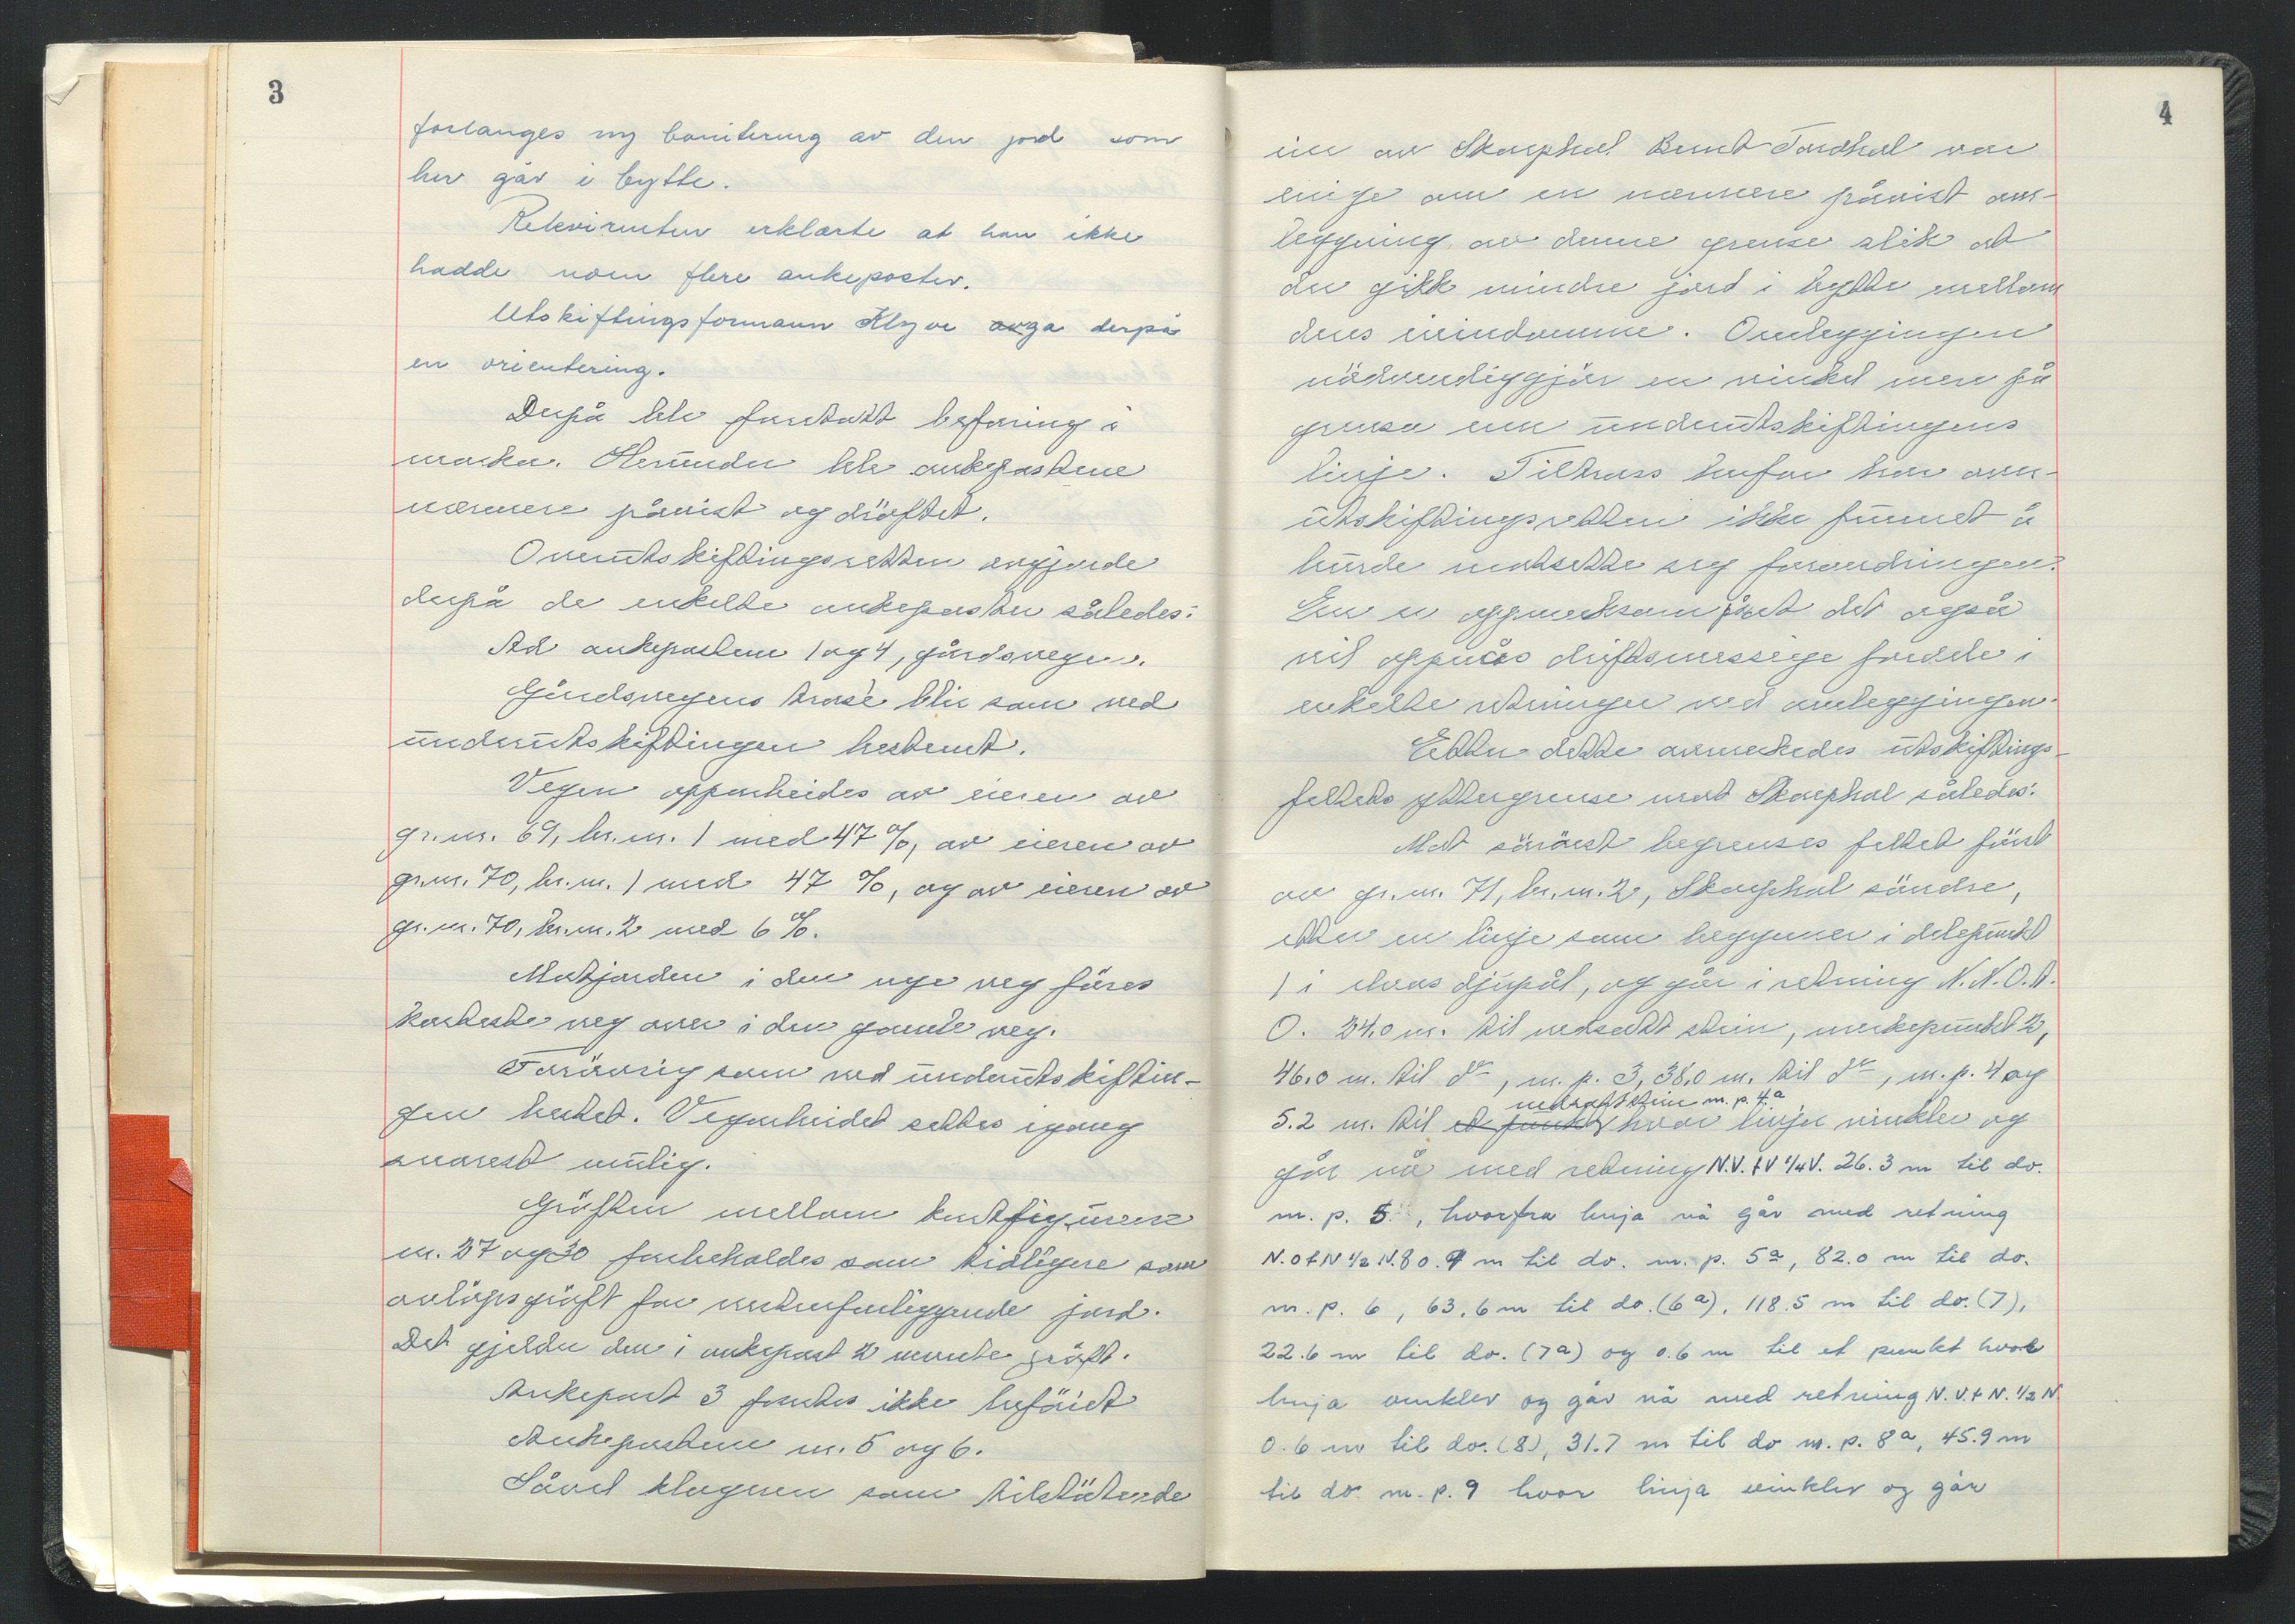 3
forlanges ny bonitering av den jord som
her går i bytte.
Rekvirenten erklærte at han ikke
hadde noen flere ankeposter.
Utskiftingsformann Klyve avga derpå
en orientering.
Derpå ble foretatt befaring i
marka. Herunder ble ankepostene
nærmere påvist og dröftet.
Overutskiftingsretten avgjorde
derpå de enkelte ankeposter således:
Ad ankepostene 1 og 4, gårdsvegen.
Gårdsvegens trasè blir som ved
underutskiftingen bestemt.
Vegen opparbeides av eieren av
gr.nr. 69, br.nr. 1 med 47 %, av eieren av
gr.nr. 70, br.nr. 1 med 47 %, og av eieren av
gr.nr. 70, br.nr. 2 med 6 %.
Matjorden i den nye veg föres
korteste veg over i den gamle veg.
Forövrig som ved underutskiftin-
gen bestemt. Vegarbeidet settes igang
snarest mulig.
Gröften mellom kartfigurene
nr. 27 og 30 forbeholdes som tidligere som
avlöpsgröft for ovenforliggende jord.
Det gjelder den i ankepost 2 nevnte gröft.
Ankepost 3 fantes ikke beföiet
Ankepostene nr. 5 og 6.
Såvel klageren som tilstötende
4
eier av Skarphol Bernt Fordhal var
enige om en nærmere påvist om-
legging av denne grense slik at
der gikk mindre jord i bytte mellom
deres eiendomme. Omleggingen
nödvendiggjör en vinkel mer på
grensa enn underutskiftingens
linje. Tiltross herfor har over-
utskiftingsretten ikke funnet å
burde motsette seg forandringen.
En er oppmerksom på at det også
vil oppnåes driftsmessige fordele i
enkelte retninger ved omleggingen.
Etter dette avmerkedes utskiftings-
feltets yttergrense mot Skarphol således:
Mot söröst begrenses feltet först
av gr.nr. 71, br.nr. 2, Skarphol söndre,
etter en linje som begynner i delepunkt
1 i elvas djupål, og går i retning N.N.O.t.
O. 24.0 m. til nedsatt stein, merkepunkt 2,
46.0 m. til do, m.p. 3, 38.0 m. til do, m.p. 4 og
nedsatt stein m.p. 4a
5.2 m. til et punkt hvor linjen vinkler og
går nå med retning N.V. t V 1/4 V. 26.3 m til do.
m.p. 5, hvorfra linja nå går med retning
N.O t N 1/2 N. 80.9 m til do. m.p. 5a, 82.0 m til do.
m.p. 6, 63.6 m til do. (6a), 118.5 m til do. (7),
22.6 m til do. (7a) og 0.6 m til et punkt hvor
linja vinkler og går nå med retning N.V. t N. 1/2 N.
0.6 m til do. (8), 31.7 m til do m.p. 8a, 45.9 m
til do. m.p. 9 hvor linja vinkler og går